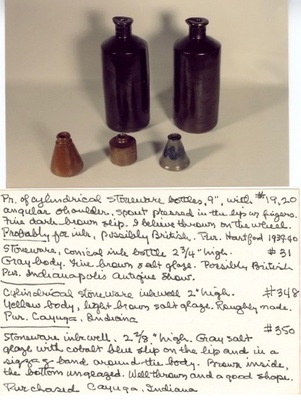 Pr. of cylindrical stoneware bottles, 9", with #19,20
angular shoulder, spout pressed in the lip w/ fingers.
Fine dark brown slip. I believe thrown on the wheel.
Probably for ink, possibly British. Pur. Hartford 1939-40
Stoneware, conical ink bottle 2 3/4" high. #31
Gray body. Fine brown salt glaze. Possibly British
Pur. Indianapolis Antique Show.
Cylindrical stoneware inkwell 2" high. #348
Yellow body, light brown salt glaze. Roughly made.
Pur. Cayuga, Indiana
#350
Stoneware inkwell. 2 7/8" high. Gray salt
glaze with cobalt blue slip on the lip and in a
zigzag band around the body. Brown inside,
the bottom unglazed. Well thrown and a good shape.
Purchased Cayuga, Indiana